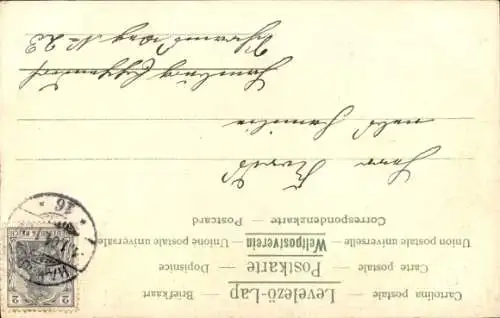 Cartolina postale — Levelező-Lap — Briefkaart
Carte postale — Postkarte — Dopisnice
Union postale universelle — Weltpostverein — Unione postale universale
Correspondenzkarte — Postcard
2 2
* 16 *
Herr
nebst Familie
Hamburg Eppendorf
Schramm Weg No 23